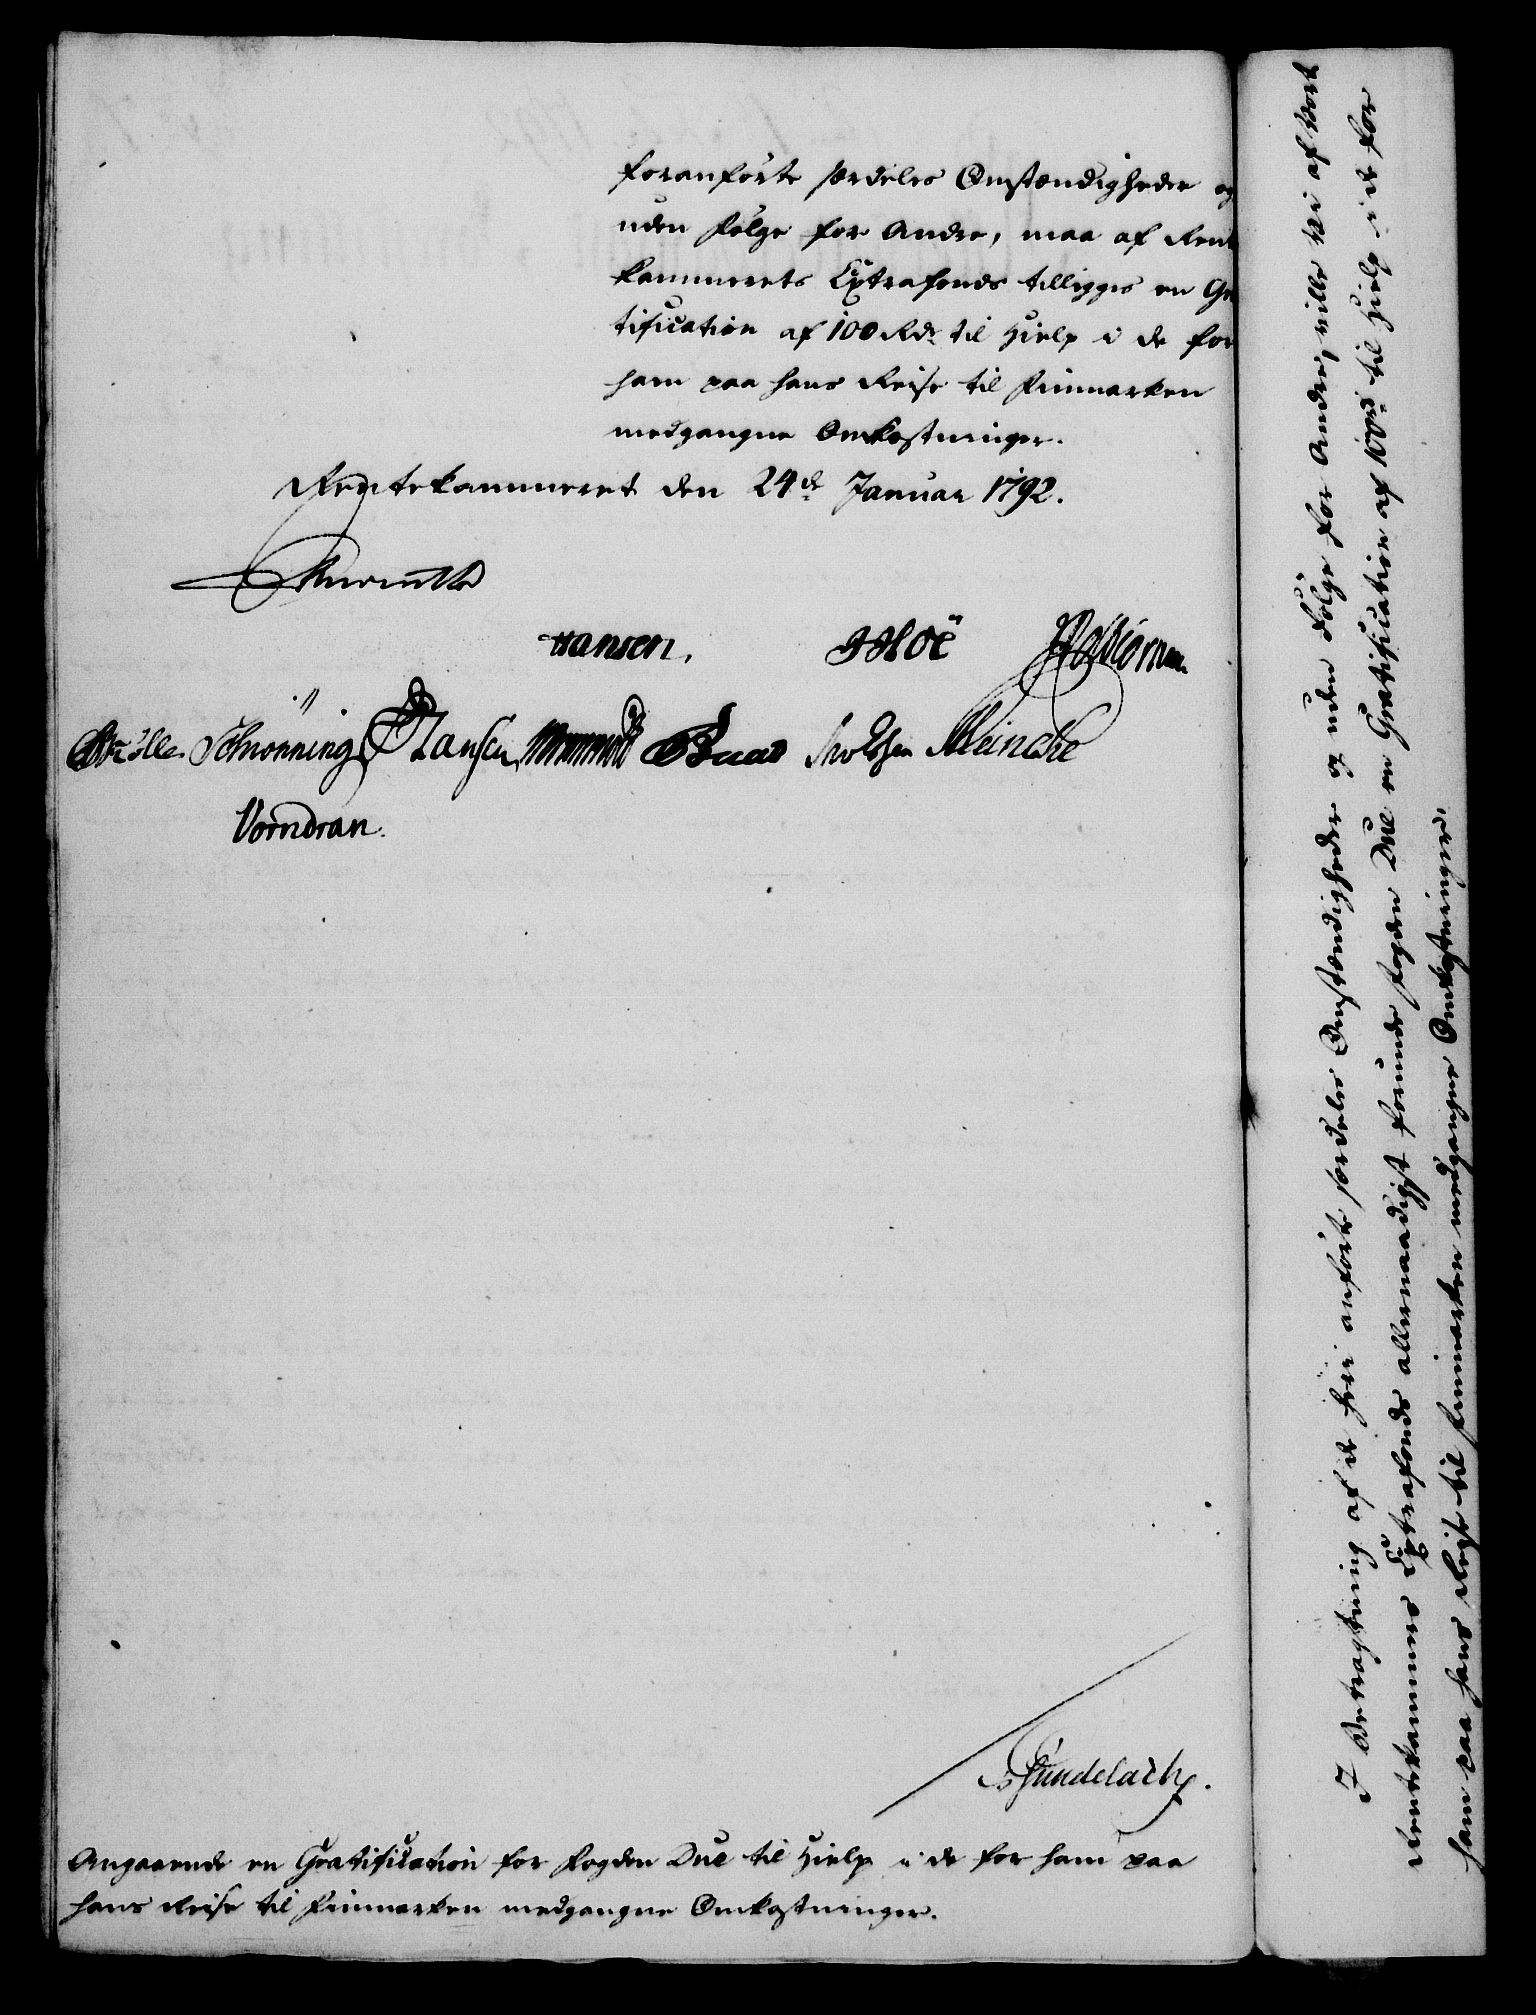 foranførte særdeles Omstændigheder og
uden Følge for Andre, maa af Rent
kammerets Extrafonds tillegges en Gra
tification af 100 Rdr til Hielp i de for
ham paa hans Reise til Finmarken
medgangne Omkostninger.
Rentekammeret den 24de Januar 1792.
Hansen.
Schiønning Hansen Meincke
Vorndran.
Gundelach.
Angaaende en Gratification for Fogden Due til Hielp i de for ham paa
hans Reise til Finmarken medgangne Omkostninger.
I Betragtning af de heri anførte særdeles Omstændigheder og uden Følge for Andre, ville Vi af Vort
Rentekammers Extrafonds allernaadigst forunde Fogden Due en Gratification af 100 rdr til Hielp i de for
ham paa hans Reise til Finmarken medgangne Omkostninger.